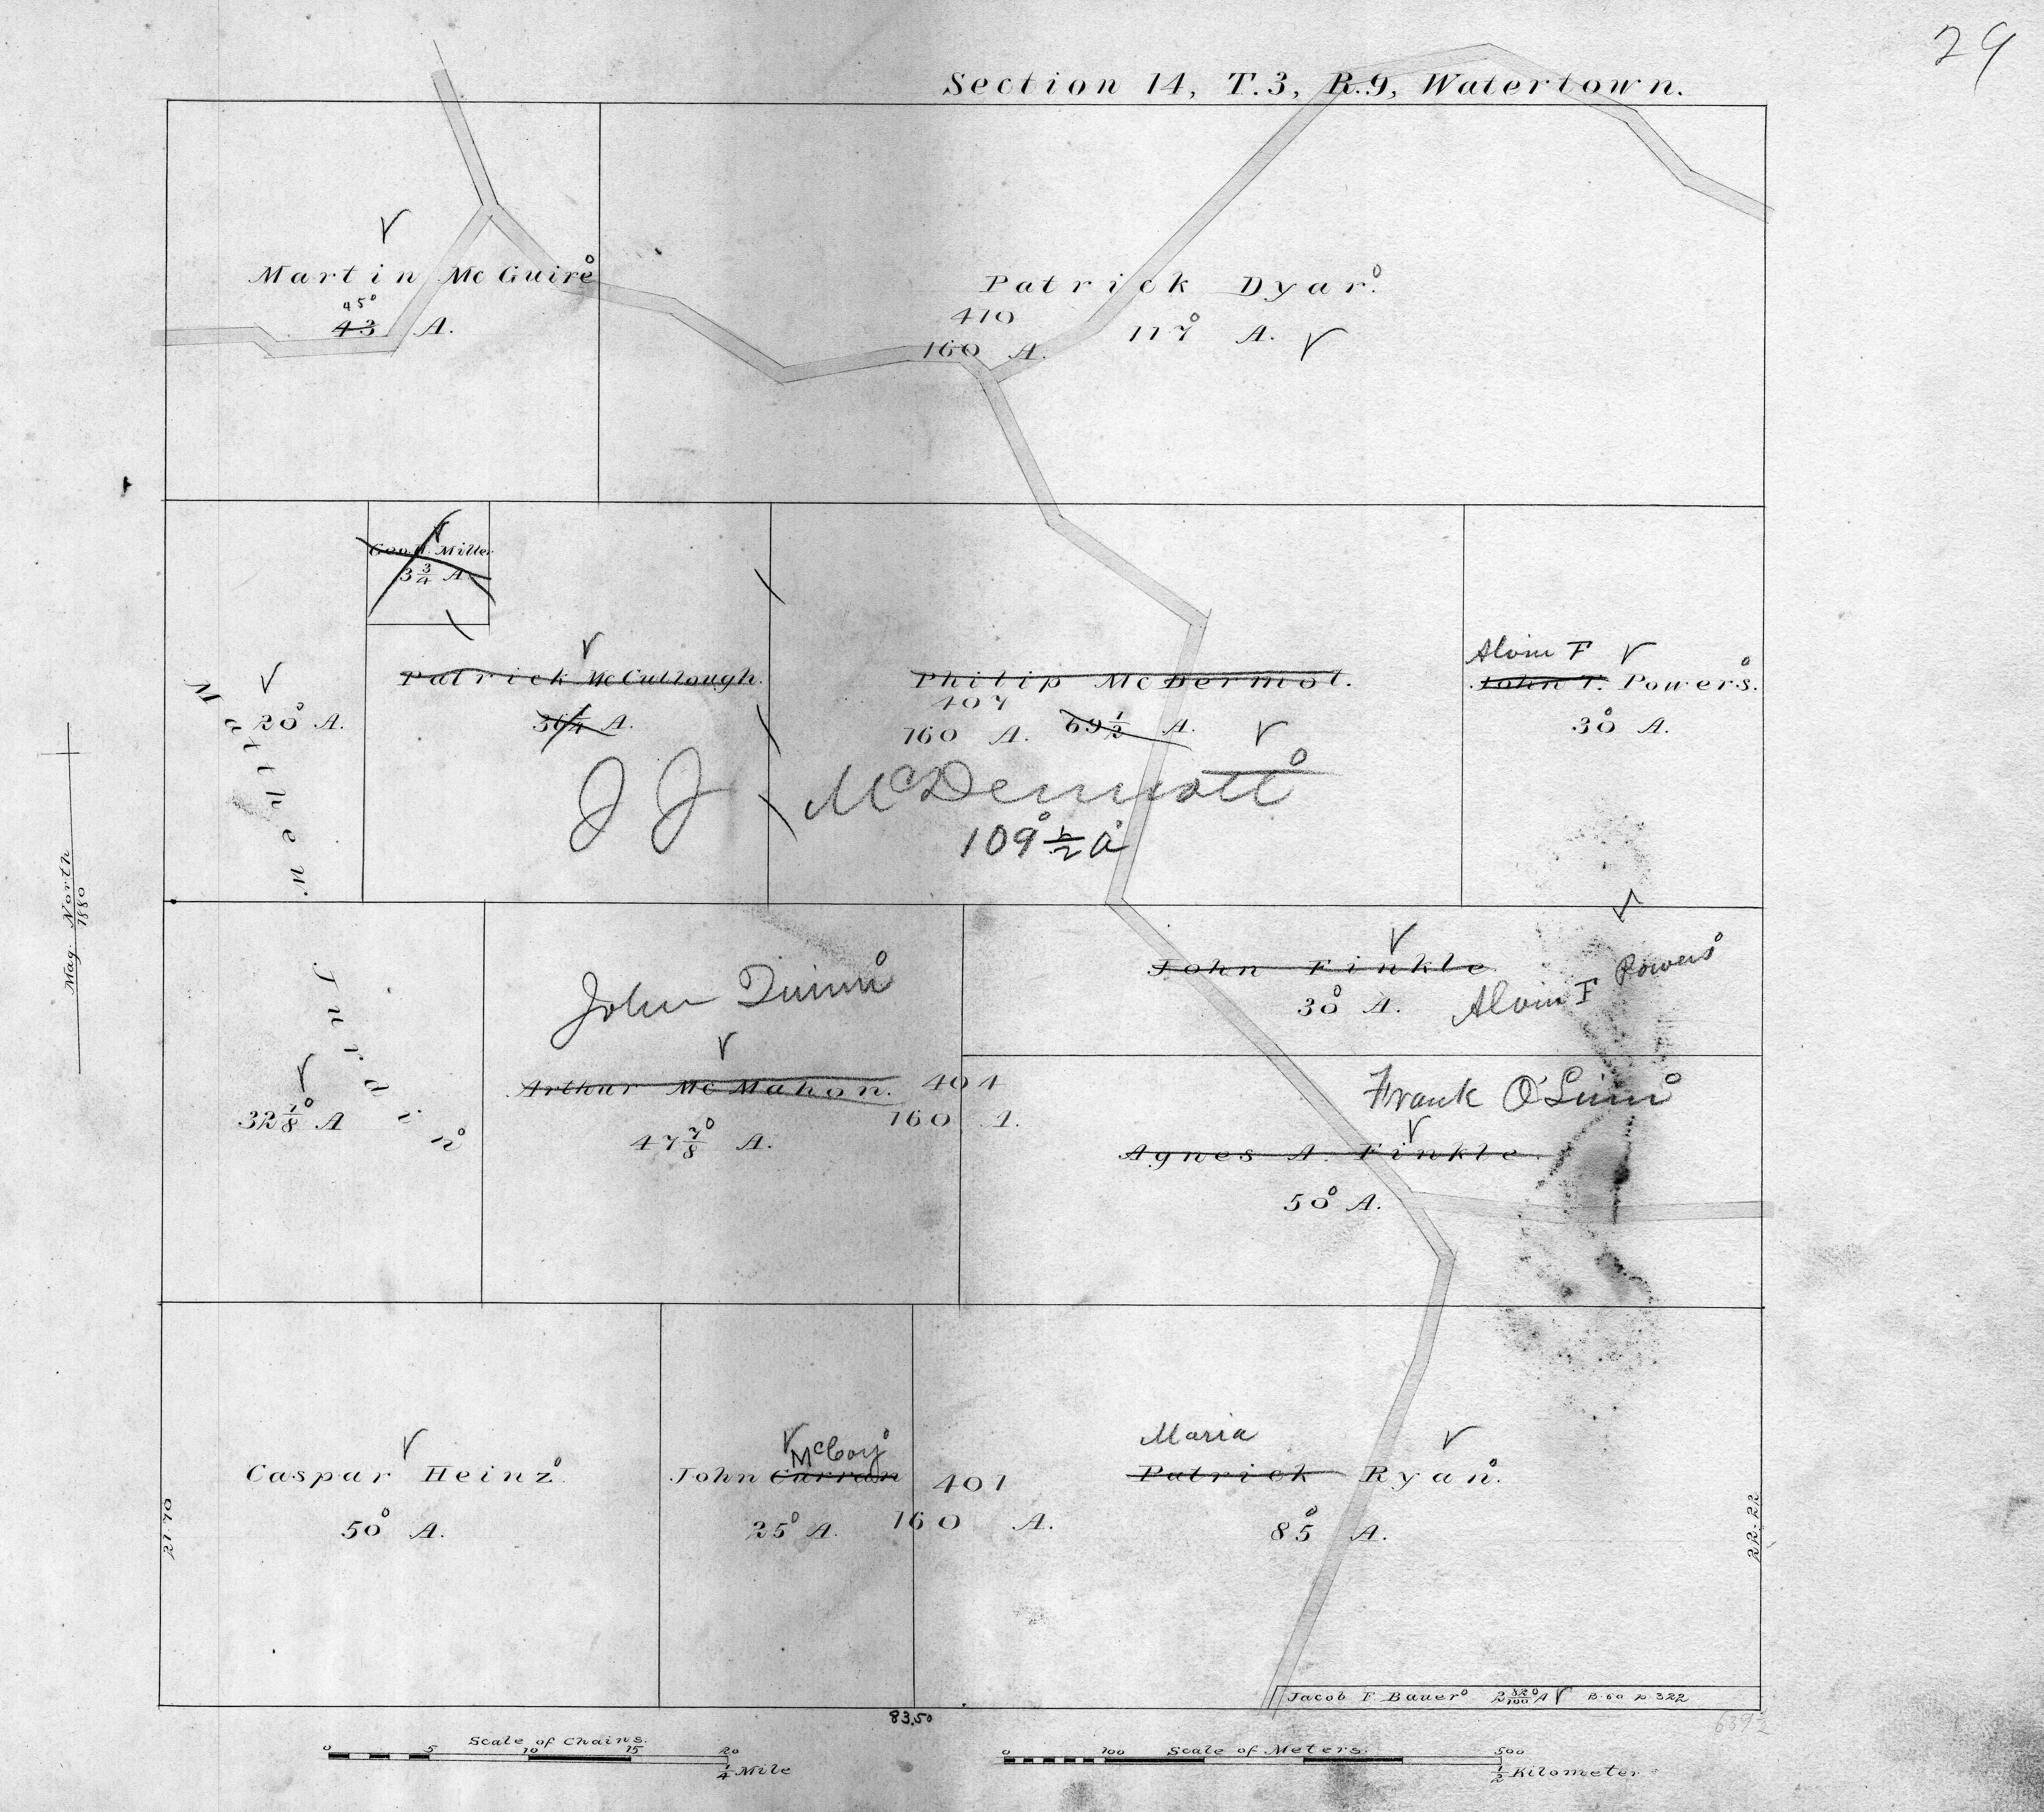 29
Section 14, T.3, R.9, Watertown.
Martin McGuire
45
43 A.
Patrick Dyar.
410
160 A.
117 A.
Geo. Miller
3 3/4 A.
Matthew
20 A.
Patrick McCullough.
A.
Philip McDermot.
407
160 A.
69 1/2 A.
J J McDermott
109 1/2 a
Alvin F
John T. Powers.
30 A.
Mag. North
1880
32 7/8 A
John Quinn
Arthur McMahon.
47 7/8 A.
401
160 A.
John Finkle
30 A.
Alvin F Powers
Frank O'Linn
Agnes A. Finkle.
50 A.
Caspar Heinz.
50 A.
McCoy
John Curran
25 A.
401
160 A.
Maria
Patrick Ryan.
85 A.
21.70
22.22
Jacob F Bauer 2 82/100 A B.60 p.322
83.50
Scale of Chains.
0 5 10 15 20
1/4 Mile
Scale of Meters.
0 100 500
1/2 Kilometer